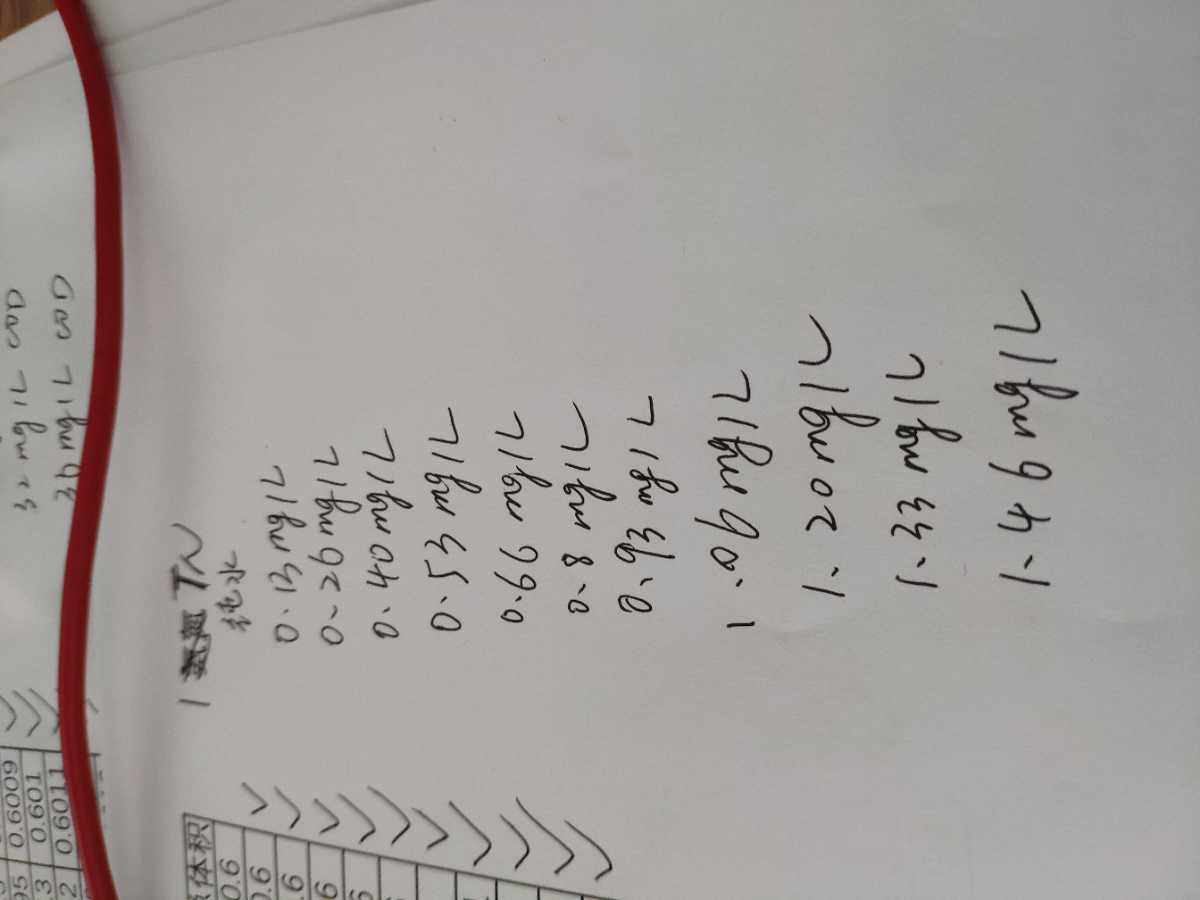 0.6009
0.601
0.6011
mg/L COD
mg/L COD
1 TN
纯水
0.13 mg/L
0.26 mg/L
0.40 mg/L
0.53 mg/L
0.66 mg/L
0.8 mg/L
0.93 mg/L
1.06 mg/L
1.20 mg/L
1.33 mg/L
1.46 mg/L
体积
0.6
0.6
.6
.6